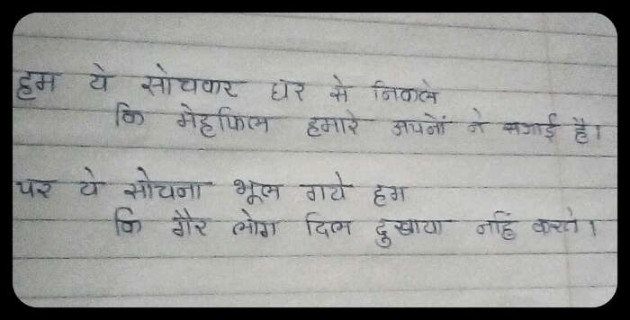 हम ये सोचकर घर से निकले
कि मेहफिल हमारे अपनों ने सजाई है।
पर ये सोचना भूल गये हम
कि गैर लोग दिल दुखाया नहिं करते।